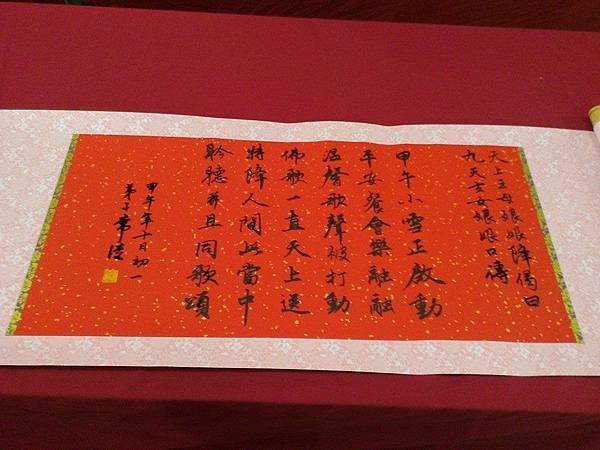 天上王母娘娘降偈曰
九天玄女娘娘口傳
甲午小雪正啟動
平安餐會樂融融
溫馨歌聲被打動
佛歌一直天上送
特降人間此當中
聆聽並且同歌頌
甲午年十月初一
弟子常